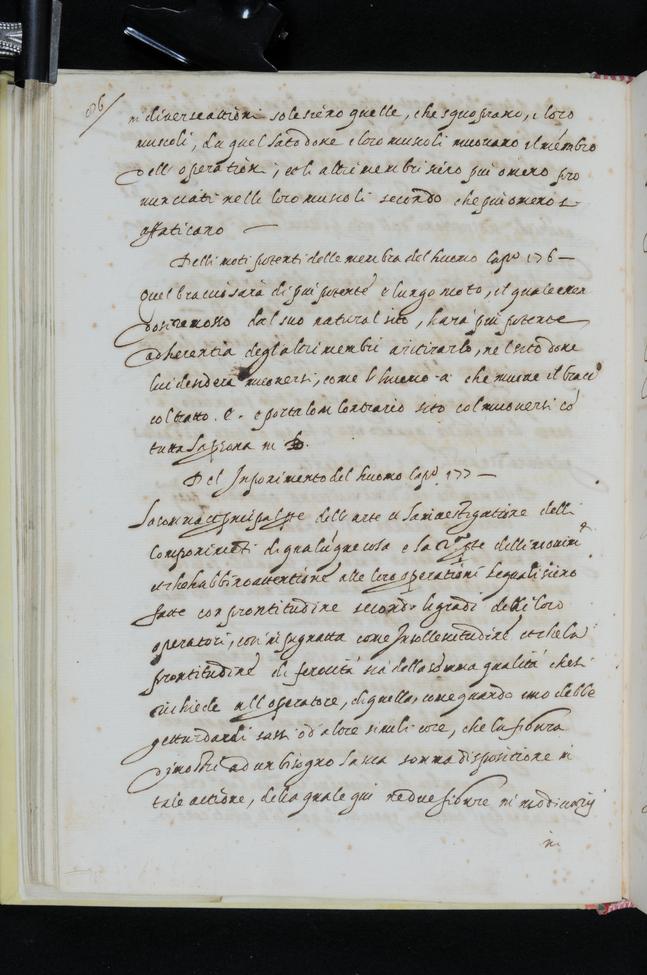 86/
in diverse attioni sole siero quelle, che s'quoprano, e loro
muscoli, da quel lato doue e loro muscoli muouano il membro
dell' operatione; et li altri membri siero piu o meno pro
nunciati nelli loro muscoli secondo che piu o meno s'
affaticano —
Delli moti potenti delle membra del huomo Capo 176 —
Quel braccio sarà di piu potente e lungo moto, il quale
dal suo natural sito, harà piu potente
adherentia degl'altri membri a ritirarlo, nel sito doue
lui desidera muouersi, come l'huomo · a · che muoue il bracio
col tratto . e . e portalo in contrario sito col muouersi cō
tutta la psona in b.
Del Componimento del huomo Capo 177 —
La con principal pte dell' arte e la inuestigatione delli
componimēti di qualūque cosa e la 2a pte delli mouimti
et che habbino attentione alle loro operationi le quali siero
fatte con prontitudine secondo li gradi delli loro
operatori, cosi in pigritia come in sollecitudine et che la
prontitudine di ferocità sia della somma qualità che si
richiede all' operatore, di quella, come quando uno debbe
gettar dardi sassi od' altre simili cose, che la figura
dimostri ad un bisogno la sua somma dispositione in
tale attione, della quale qui ne due figure in modi uarij
in